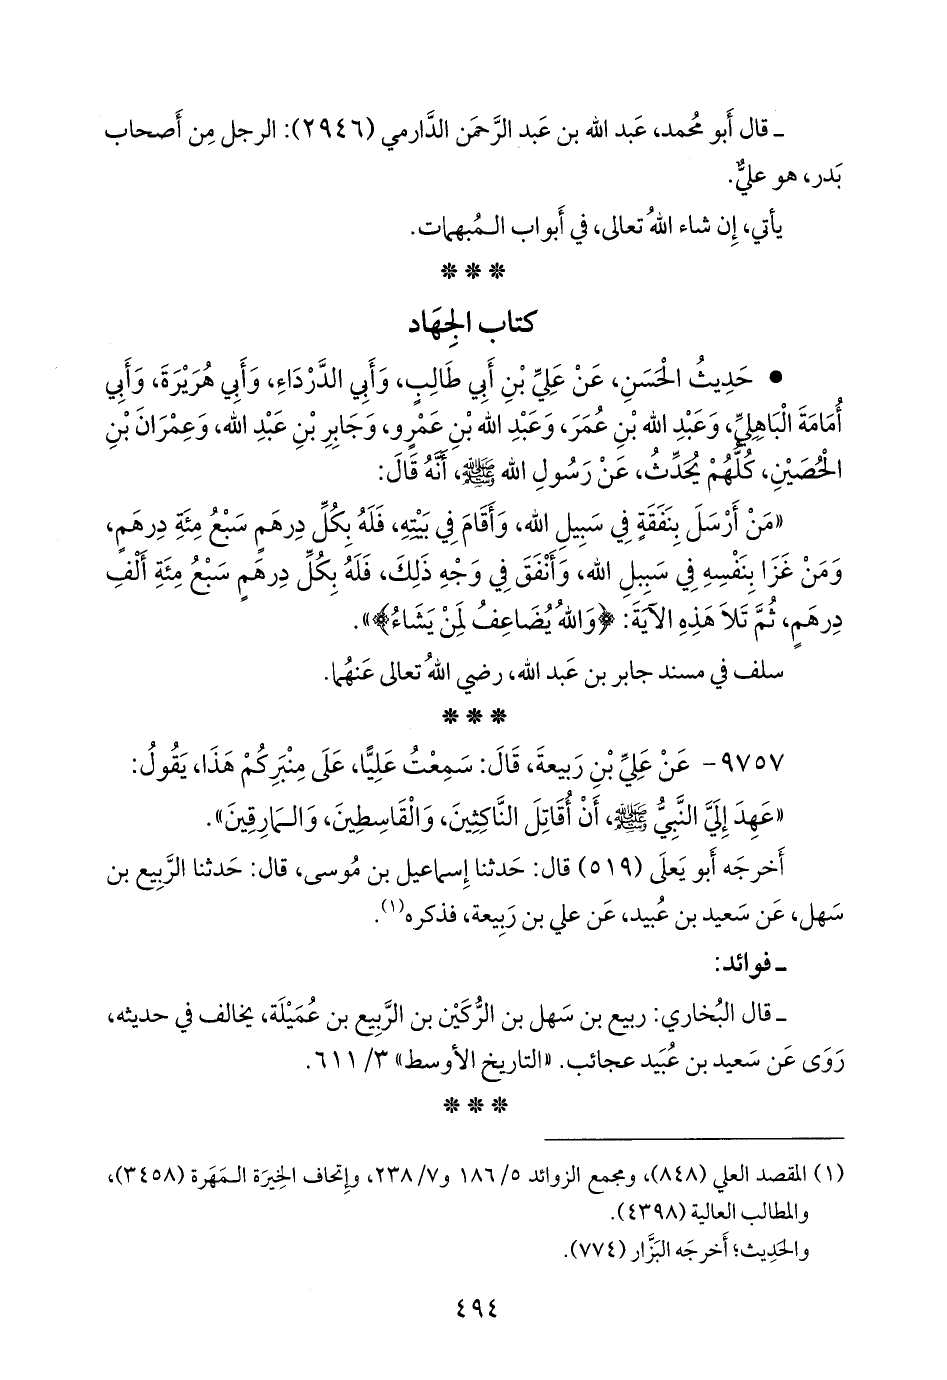 ـ قال أَبو مُحمد، عَبد الله بن عَبد الرَّحمَن الدَّارمي (٢٩٤٦): الرجل مِن أَصحاب
بَدر، هو عليٌّ.
يأتي، إِن شاء اللهُ تعالى، في أَبواب الـمُبهمات.
* * *
كتاب الجِهَاد
• حَدِيثُ الْحَسَنِ، عَنْ عَلِيِّ بْنِ أَبِي طَالِبٍ، وَأَبِي الدَّرْدَاءِ، وَأَبِي هُرَيْرَةَ، وَأَبِي
أُمَامَةَ الْبَاهِلِيِّ، وَعَبْدِ الله بْنِ عُمَرَ، وَعَبْدِ الله بْنِ عَمْرٍو، وَجَابِرِ بْنِ عَبْدِ الله، وَعِمْرَانَ بْنِ
الْحُصَيْنِ، كُلُّهُمْ يُحَدِّثُ، عَنْ رَسُولِ الله ﷺ، أَنَّهُ قَالَ:
«مَنْ أَرْسَلَ بِنَفَقَةٍ فِي سَبِيلِ الله، وَأَقَامَ فِي بَيْتِهِ، فَلَهُ بِكُلِّ دِرهَمٍ سَبْعُ مِئَةِ دِرهَمٍ،
وَمَنْ غَزَا بِنَفْسِهِ فِي سَبِيلِ الله، وَأَنْفَقَ فِي وَجْهِ ذَلِكَ، فَلَهُ بِكُلِّ دِرهَمٍ سَبْعُ مِئَةِ أَلْفِ
دِرهَمٍ، ثُمَّ تَلاَ هَذِهِ الآيَةَ: ﴿وَاللهُ يُضَاعِفُ لِمَنْ يَشَاءُ﴾».
سلف في مسند جابر بن عَبد الله، رضي اللهُ تعالى عَنهُما.
* * *
٩٧٥٧- عَنْ عَلِيِّ بْنِ رَبِيعةَ، قَالَ: سَمِعْتُ عَلِيًّا، عَلَى مِنْبَرِكُمْ هَذَا، يَقُولُ:
«عَهِدَ إِلَيَّ النَّبِيُّ ﷺ، أَنْ أُقَاتِلَ النَّاكِثِينَ، وَالْقَاسِطِينَ، وَالـمَارِقِينَ».
أَخرجَه أَبو يَعلَى (٥١٩) قال: حَدثنا إِسماعيل بن مُوسى، قال: حَدثنا الرَّبيع بن
سَهل، عَن سَعيد بن عُبيد، عَن علي بن رَبيعة، فذكره(١).
ـ فوائد:
ـ قال البُخاري: ربيع بن سَهل بن الرُّكَيْن بن الرَّبِيع بن عُمَيْلَة، يخالف في حديثه،
رَوَى عَن سَعيد بن عُبَيد عجائب. «التاريخ الأَوسط» ٣/ ٦١١.
* * *
(١) المقصد العلي (٨٤٨)، ومجمع الزوائد ٥/ ١٨٦ و٧/ ٢٣٨، وإِتحاف الخِيرَة الـمَهَرة (٣٤٥٨)،
والمطالب العالية (٤٣٩٨).
والحَدِيث؛ أَخرجَه البَزَّار (٧٧٤).
٤٩٤